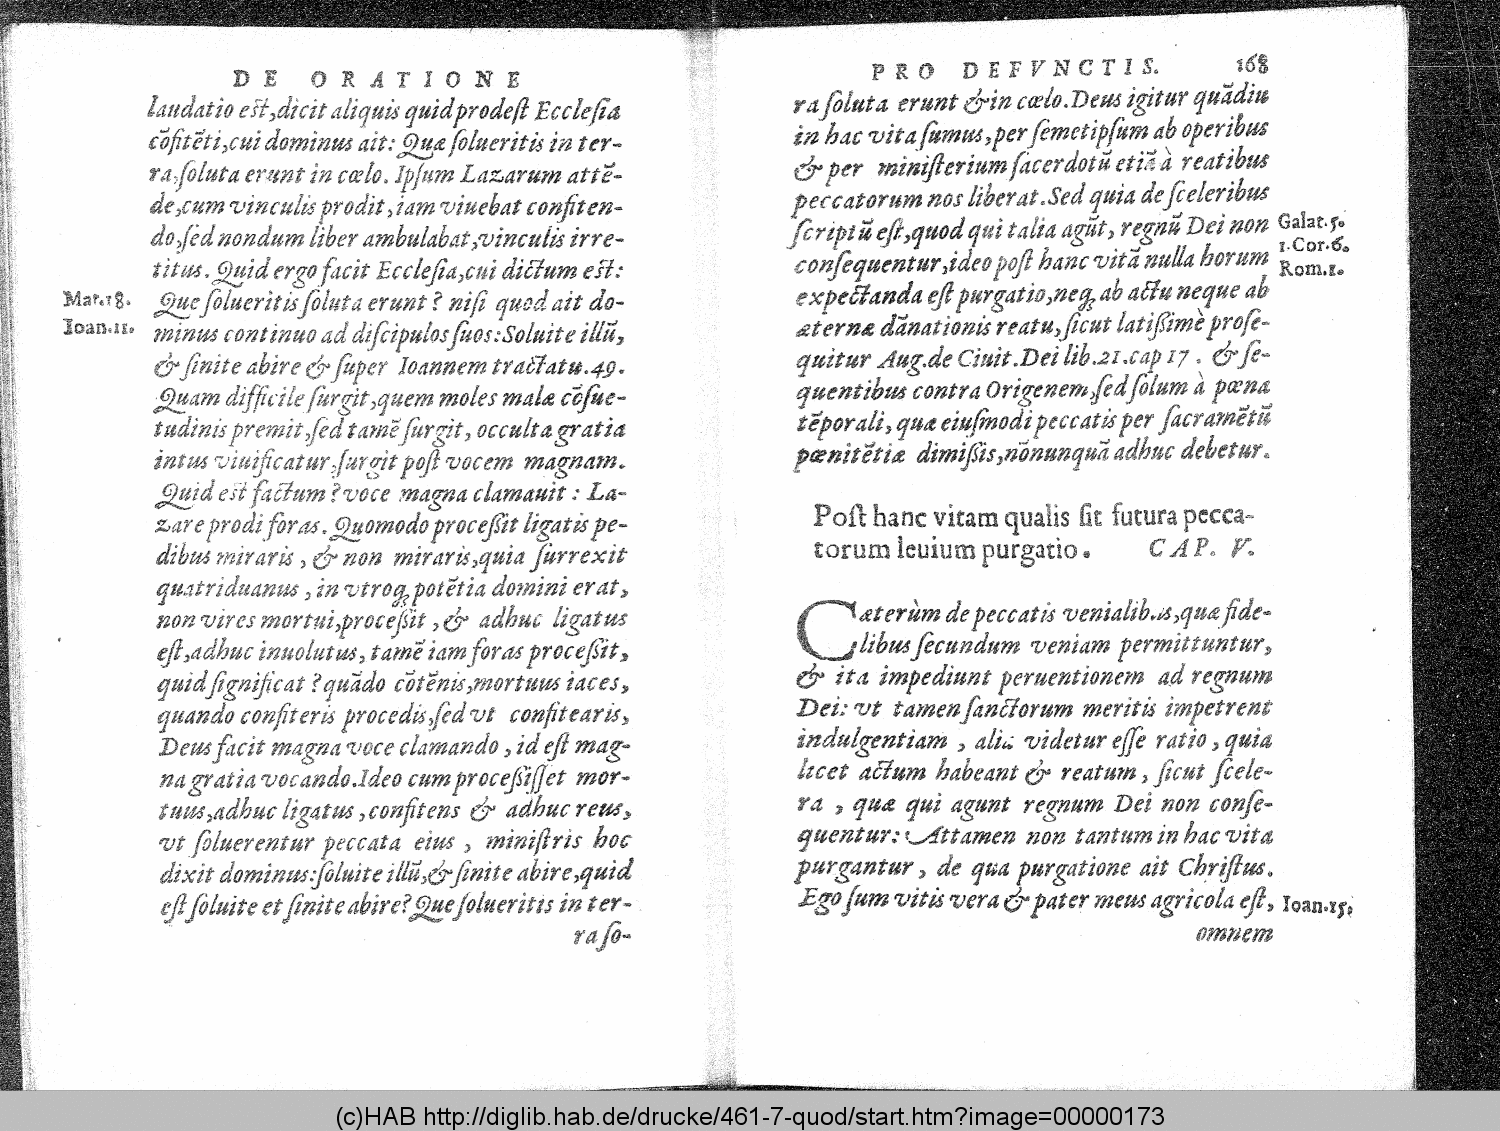 DE ORATIONE
laudatio est, dicit aliquis quid prodeſt Eccleſia
cõfitẽti, cui dominus ait: Quæ ſolueritis in ter-
ra, ſoluta erunt in cœlo. Ipſum Lazarum attẽ-
de, cum vinculis prodit, iam viuebat confiten-
do, ſed nondum liber ambulabat, vinculis irre-
titus. Quid ergo facit Eccleſia, cui dictum est:
Mat.18. Que ſolueritis ſoluta erunt? niſi quod ait do-
Ioan.11. minus continuo ad diſcipulos ſuos: Soluite illũ,
& ſinite abire & ſuper Ioannem tractatu.49.
Quam difficile ſurgit, quem moles malæ cõſue-
tudinis premit, ſed tamẽ ſurgit, occulta gratia
intus viuificatur, ſurgit poſt vocem magnam.
Quid est factum? voce magna clamauit: La-
zare prodi foras. Quomodo proceſſit ligatis pe-
dibus miraris, & non miraris, quia ſurrexit
quatriduanus, in vtroq; potẽtia domini erat,
non vires mortui, proceſſit, & adhuc ligatus
eſt, adhuc inuolutus, tamẽ iam foras proceſſit,
quid ſignificat? quãdo cõtẽnis, mortuus iaces,
quando confiteris procedis, ſed vt confitearis,
Deus facit magna voce clamando, id eſt mag-
na gratia vocando. Ideo cum proceſſiſſet mor-
tuus, adhuc ligatus, confitens & adhuc reus,
vt ſoluerentur peccata eius, miniſtris hoc
dixit dominus: ſoluite illũ, & ſinite abire, quid
eſt ſoluite et ſinite abire? Que ſolueritis in ter-
ra ſo-
PRO DEFVNCTIS. 168
ra ſoluta erunt & in cœlo. Deus igitur quãdiu
in hac vita ſumus, per ſemetipſum ab operibus
& per miniſterium ſacerdotũ etiã à reatibus
peccatorum nos liberat. Sed quia de ſceleribus
ſcriptũ eſt, quod qui talia agũt, regnũ Dei non Galat.5.
conſequentur, ideo poſt hanc vitã nulla horum 1.Cor.6.
expectanda eſt purgatio, neq; ab actu neque ab Rom.1.
æternæ dãnationis reatu, ſicut latiſſimè proſe-
quitur Aug. de Ciuit. Dei lib.21. cap 17. & ſe-
quentibus contra Origenem, ſed ſolum à pœna
tẽporali, quæ eiuſmodi peccatis per ſacramẽtũ
pœnitẽtiæ dimiſſis, nõnunquã adhuc debetur.
Poſt hanc vitam qualis ſit futura pecca-
torum leuium purgatio. CAP. V.
Cæterùm de peccatis venialibus, quæ fide-
libus ſecundum veniam permittuntur,
& ita impediunt peruentionem ad regnum
Dei: vt tamen ſanctorum meritis impetrent
indulgentiam, alia videtur eſſe ratio, quia
licet actum habeant & reatum, ſicut ſcele-
ra, quæ qui agunt regnum Dei non conſe-
quentur: Attamen non tantum in hac vita
purgantur, de qua purgatione ait Chriſtus.
Ego ſum vitis vera & pater meus agricola eſt, Ioan.15,
omnem
(c)HAB http://diglib.hab.de/drucke/461-7-quod/start.htm?image=00000173